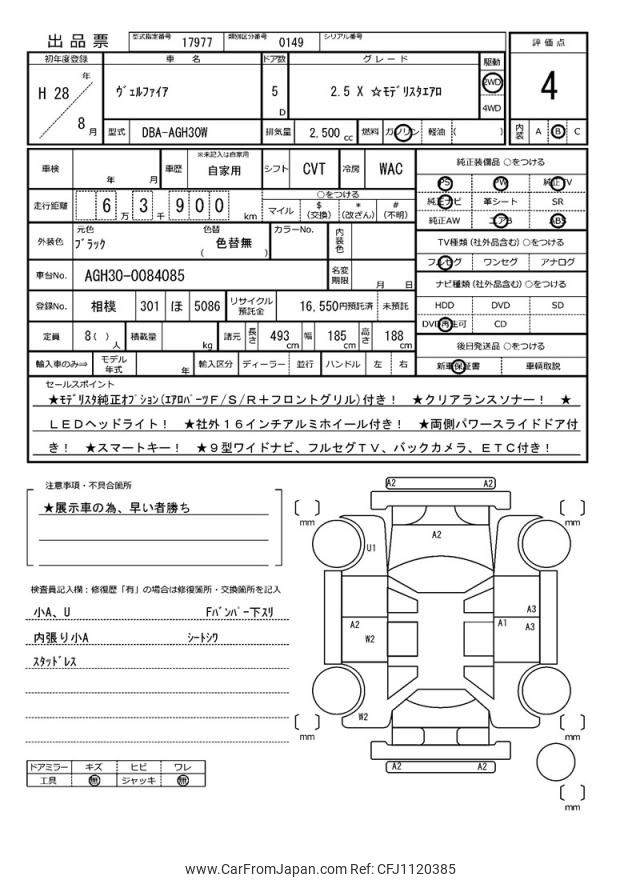 出品票 型式指定番号 17977 類別区分番号 0149 シリアル番号
評価点
4
初年度登録 車名 ドア数 グレード 駆動
H 28 年 8 月 ヴェルファイア 5 D 2.5 X ☆モデリスタエアロ 2WD 4WD
型式 DBA-AGH30W 排気量 2,500 cc 燃料 ガソリン 軽油 ( ) 内装 A B C
車検 年 月 車歴 ※未記入は自家用 自家用 シフト CVT 冷房 WAC
純正装備品 ○をつける
PS PW 純正TV
純正ナビ 革シート SR
純正AW エアB ABS
走行距離 6 万 3 千 9 0 0 km
○をつける
マイル $ (交換) * (改ざん) # (不明)
外装色 元色 ブラック 色替 ( 色替無 ) カラーNo. 内装色
TV種類 (社外品含む) ○をつける
フルセグ ワンセグ アナログ
車台No. AGH30-0084085 名変期限 月 日
ナビ種類 (社外品含む) ○をつける
HDD DVD SD
DVD再生可 CD
登録No. 相模 301 ほ 5086 リサイクル預託金 16,550円預託済 未預託
定員 8 ( ) 人 積載量 kg 諸元 長さ 493 cm 幅 185 cm 高さ 188 cm
後日発送品 ○をつける
新車保証書 車輌取説
輸入車のみ⇒ モデル年式 年 輸入区分 ディーラー 並行 ハンドル 左 右
セールスポイント
★モデリスタ純正オプション(エアロパーツF/S/R+フロントグリル)付き! ★クリアランスソナー! ★
LEDヘッドライト! ★社外16インチアルミホイール付き! ★両側パワースライドドア付
き! ★スマートキー! ★9型ワイドナビ、フルセグTV、バックカメラ、ETC付き!
注意事項・不具合箇所
★展示車の為、早い者勝ち
検査員記入欄:修復歴「有」の場合は修復箇所・交換箇所を記入
小A、U Fバンパー下スリ
内張り小A シートシワ
スタッドレス
ドアミラー キズ ヒビ ワレ
工具 無 ジャッキ 無
A2 A2
mm mm
A2
U1
A3
A2 A1 A3
W2
W2
mm mm
A2 A2
mm
www.CarFromJapan.com Ref: CFJ1120385